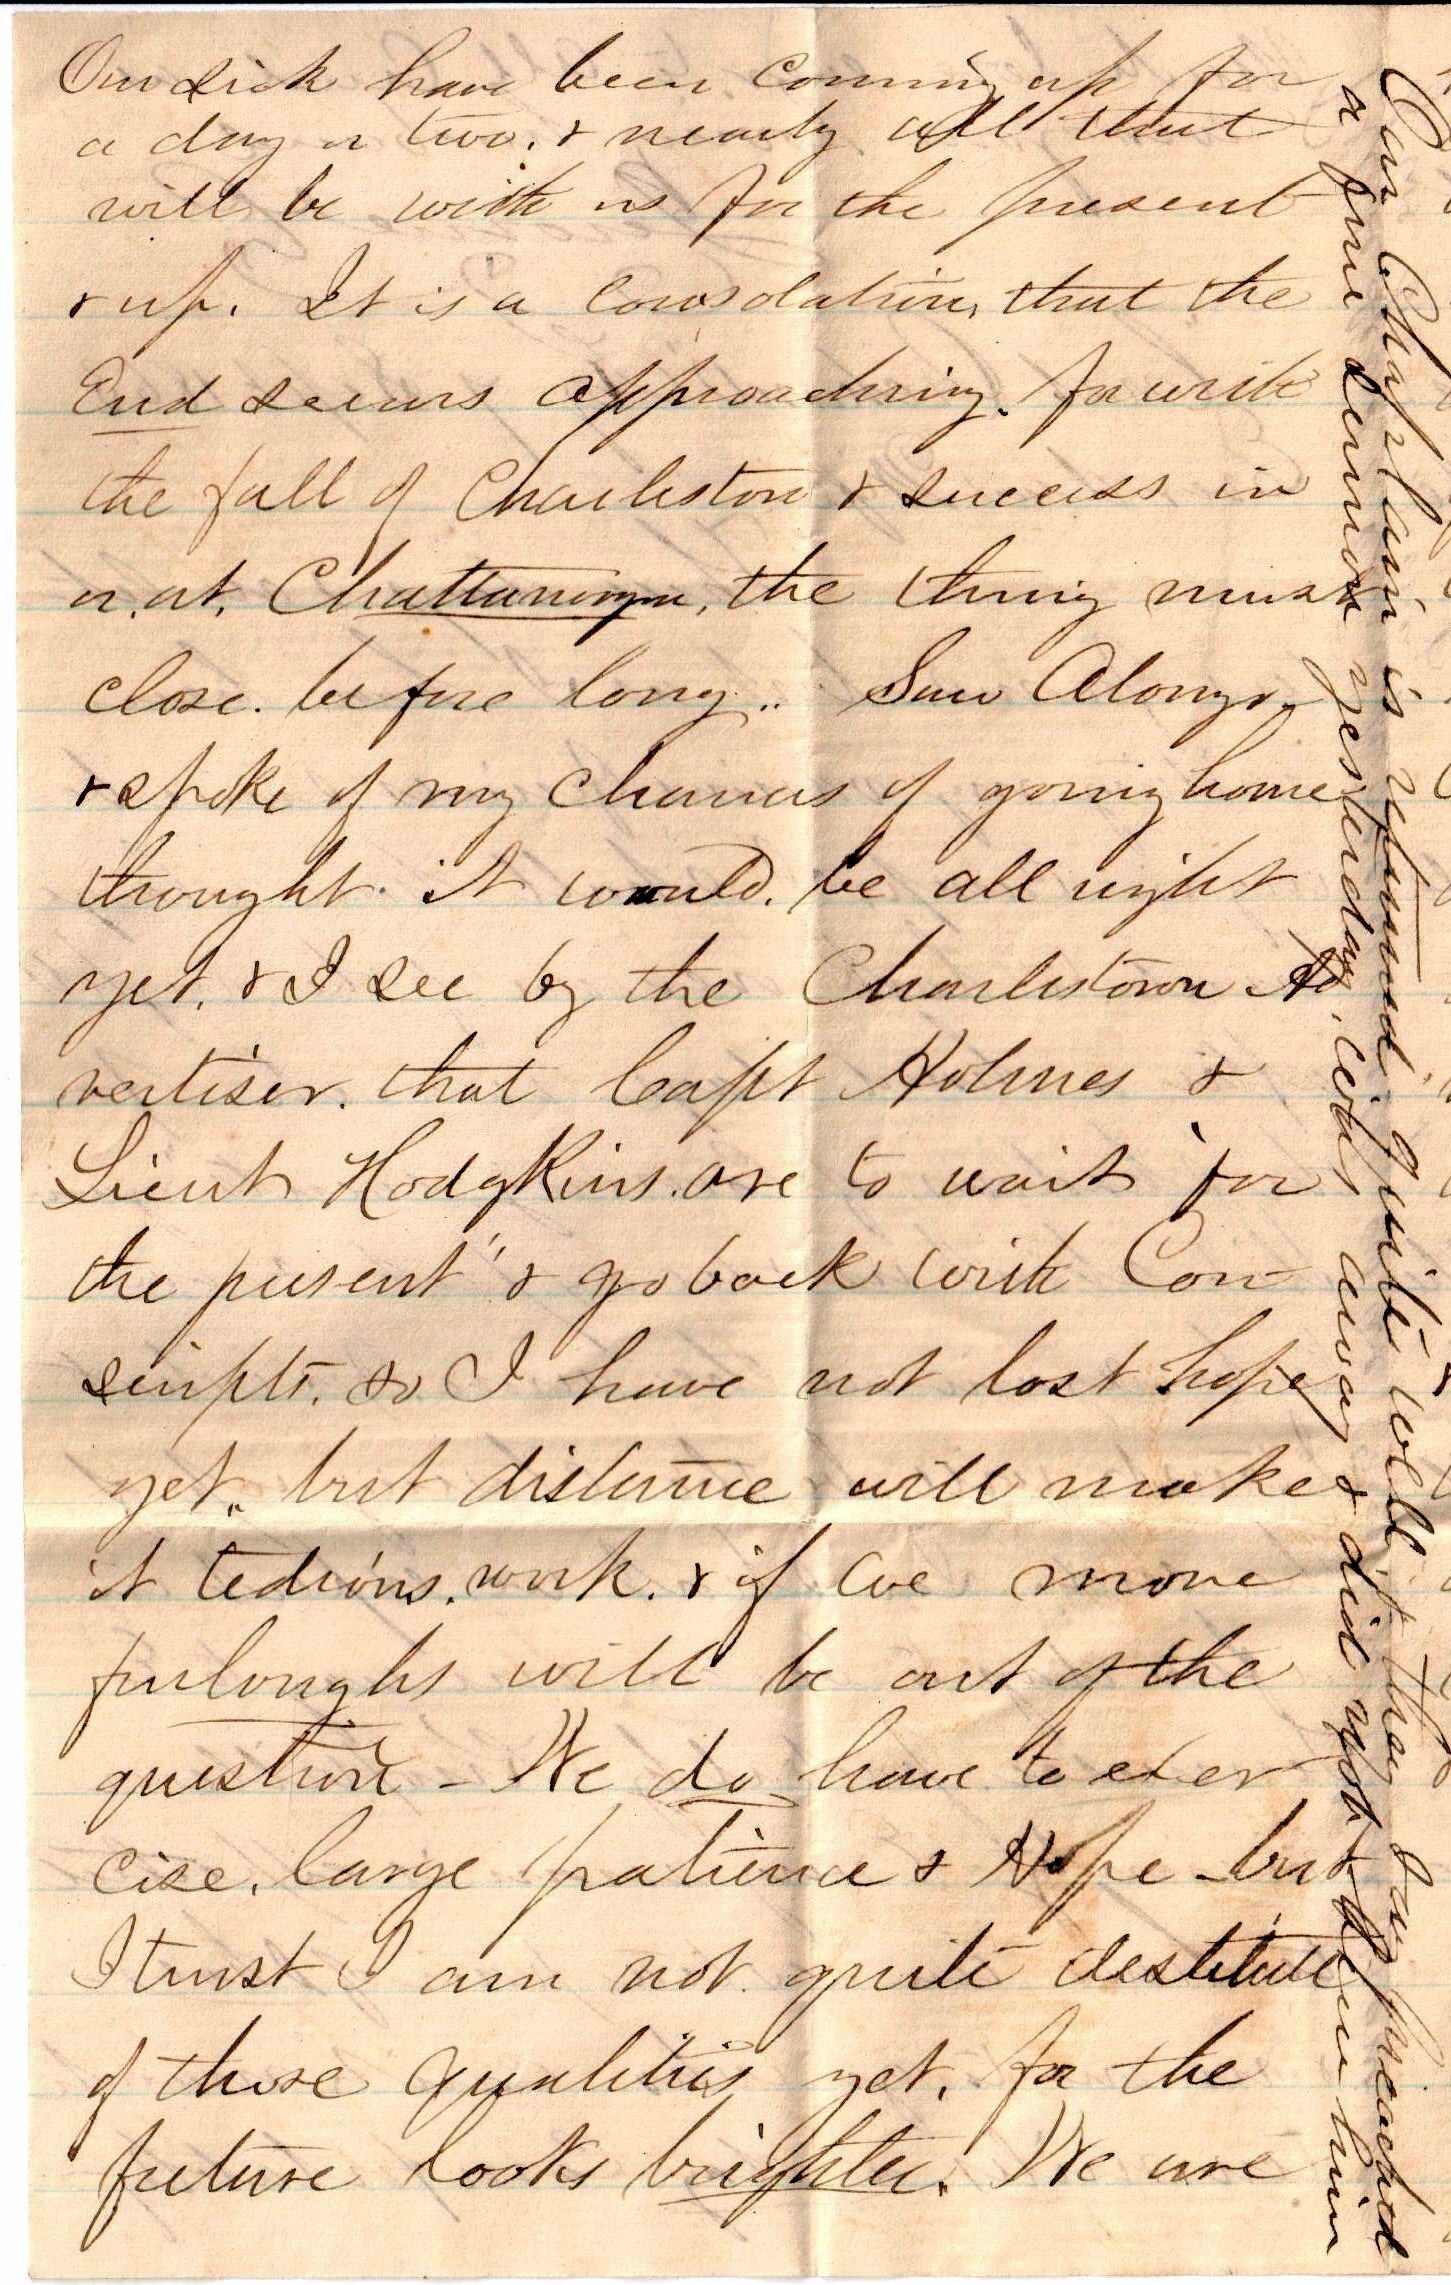 Our sick have been coming up for
a day or two. & nearly all that
will be with us for the present
r up. It is a consolation, that the
End seems approaching. for with
the fall of Charleston & success in
or, at, Chattanooga, the thing must
close. before long.. Saw Alonzo.
& spoke of my chances of going home
thought it would. be all right
yet. & I see by the Charlestown Ad
vertiser. that Capt Holmes &
Lieut Hodgkins. are to wait for
the present & go back with Con
scripts. so I have not lost hope
yet. but distance will make
it tedious. work. & if we move
furloughs will be out of the
question - We do have to exer
cise. large patience & Hope - but
I trust I am not quite destitute
of those qualities yet. for the
future looks brighter. We are
Our Chaplain is returned quite well. they say preached
a fine sermon yesterday, I was away & did not hear him